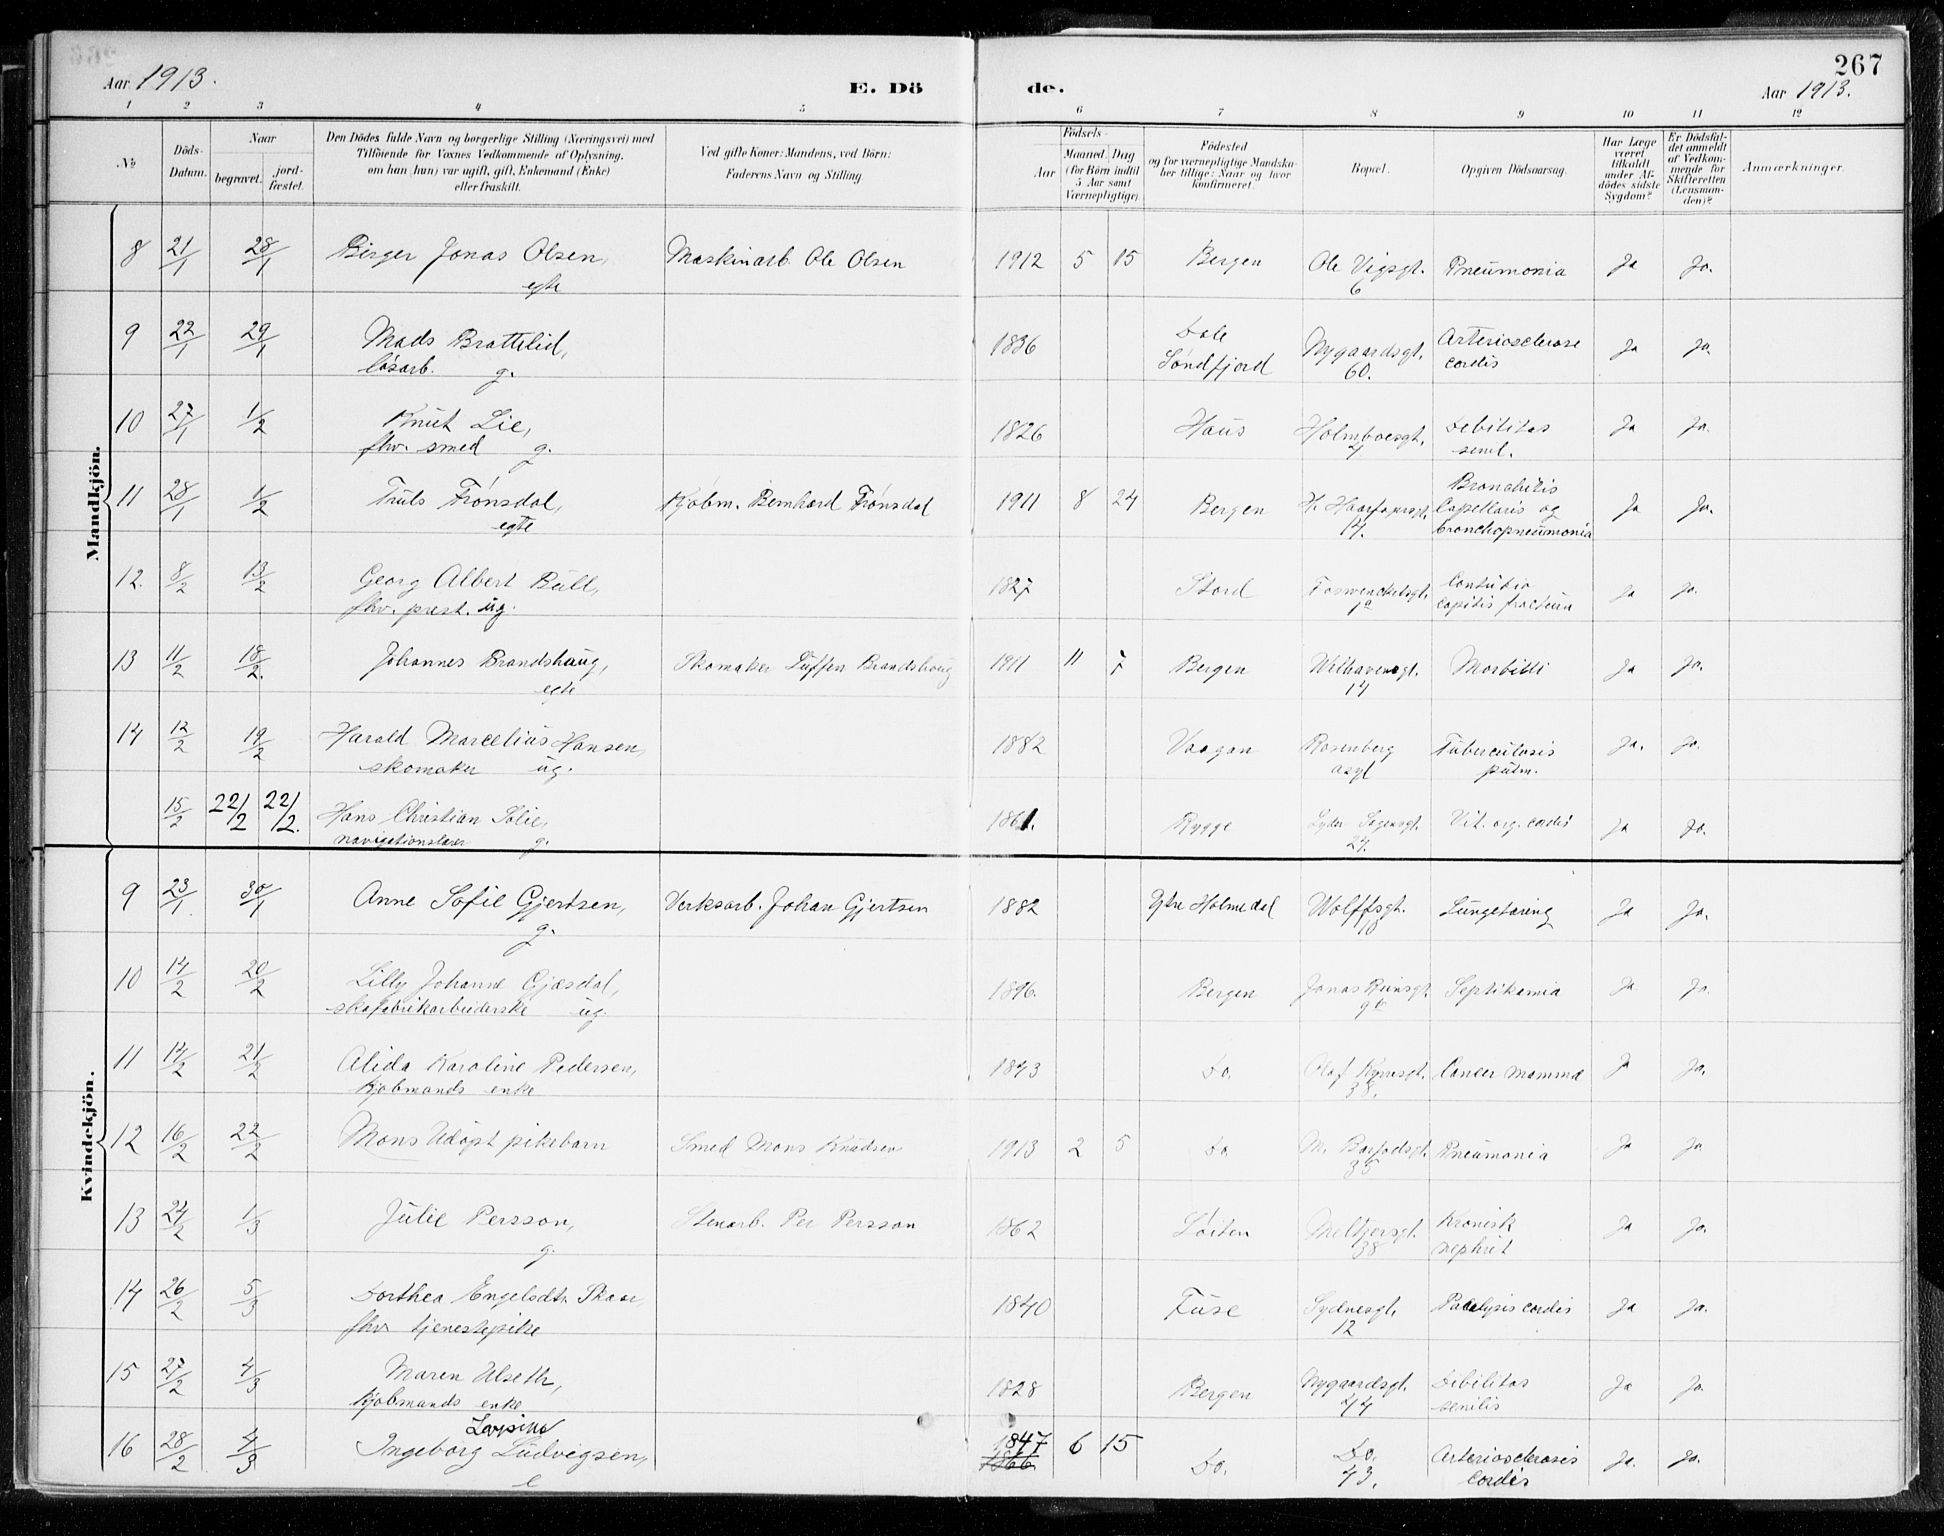 267
Aar 1913.
E. Dö
de.
Aar 1913.
1 2 3 4 5 6 7 8 9 10 11 12
No
Döds-Datum.
Naar
begravet.
jord-fæstet.
Den Dödes fulde Navn og borgerlige Stilling (Næringsvei) med
Tilföiende for Voxnes Vedkommende af Oplysning,
om han (hun) var ugift, gift, Enkemand (Enke)
eller fraskilt.
Ved gifte Koner: Mandens, ved Börn:
Faderens Navn og Stilling.
Födsels-
Aar
Maaned. Dag
(for Börn indtil
5 Aar samt
Værnepligtige).
Födested
og for værnepligtige Mandskaber tillige: Naar og hvor konfirmeret.
Bopæl.
Opgiven Dödsaarsag.
Har Læge været tilkaldt under Afdödes sidste Sygdom?
Er Dödsfaldet anmeldt af Vedkommende for Skifteretten (Lensmanden)?
Anmærkninger.
Mandkjön.
8 21/1 28/1 Birger Jonas Olsen, Maskinarb. Ole Olsen 1912 5 15 Bergen Ole Vigsgt. Pneumonia Ja Ja.
egte 6
9 22/1 29/1 Mads Brattelid, 1836 Dale Nygaardsgt. Arteriosclerose Ja Ja.
løsarb. g. Søndfjord 60. cordis
10 27/1 1/2 Knut Lie, 1826 Haus Holmboesgt. Debilitas Ja Ja.
fhv. smed g. senil.
11 28/1 1/2 Truls Frønsdal, Kjøbm. Bernhard Frønsdal 1911 8 24 Bergen Bronchitis Ja Ja.
egte 17. Capellaris og
bronchopneumonia
12. 8/2 13/2 Georg Albert Bull, 1827 Stord Fosswinckelsgt. Contusio Ja Ja.
fhv. prest. ug. 1a capitis fractura
13 11/2 18/2. Johannes Brandshaug, Skomaker Tuffen Brandshaug 1911 11 7 Bergen Welhavensgt. Morbilli Ja Ja.
egte 14
14 12/2 19/2 Harald Marcelius Hansen, 1882 Vaagan Rosenberg Tuberculosis Ja. Ja.
skomaker ug. asyl pulm.
15/2 22/2 22/2. Hans Christian Solie, 1861. Rygge Lyder Sagensgt. Vit. org. cordis Ja Ja.
navigationslærer g. 24.
Kvindekjön.
9 23/1 30/1 Anne Sofie Gjertsen, Verksarb. Johan Gjertsen 1882 Ytre Holmedal Wolffsgt. Lungetæring Ja Ja.
g. 10
10 14/2 20/2 Lilly Johanne Gjæsdal, 1896. Bergen Jonas Reinsgt. Septikæmia Ja Ja.
skofabrikarbeiderske ug. 9b
11 14/2 21/2 Alida Karoline Pedersen, 1843 Do. Olaf Kyrresgt. Cancer mammæ Ja Ja.
Kjøbmands enke 38.
12 16/2 22/2 Mons Udøpt pikebarn Smed Mons Knudsen 1913 2 5 Do. M. Barfodsgt. Pneumonia Ja Ja
35
13 24/2 1/3 Julie Persson, Stenarb. Per Persson 1862 Løiten Meltzersgt. Kronisk Ja Ja.
g. 38 nephrit
14 26/2 5/3 Dorthea Engelsdtr. Skaar, 1840 Fuse Sydnesgt. Paralysis cordis Ja Ja.
fhv. tjenestepike 12
15 27/2 4/3 Maren Ulseth, 1828 Bergen Nygaardsgt. Debilitas Ja Ja.
Kjøbmands enke 44 senilis
16 28/2 4/3 Ingeborg Lovsina Ludvigsen, 1847 1866. 6 15 Do. Do. Arteriosclerosis Ja. Ja.
e 43. Cordis